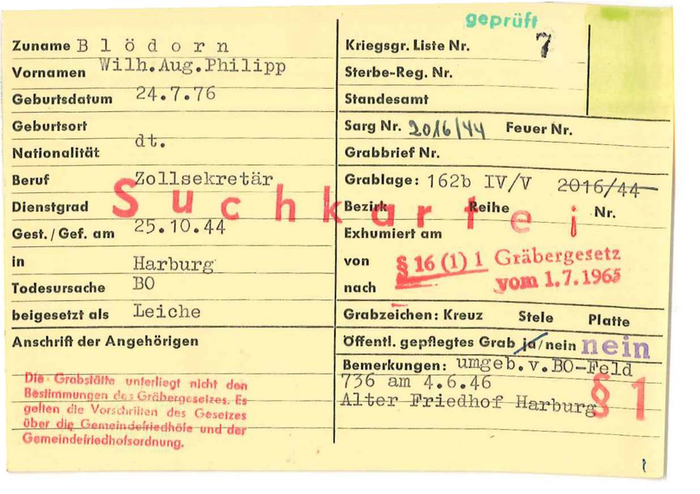 geprüft
Zuname B l ö d o r n
Vornamen Wilh.Aug.Philipp
Geburtsdatum 24.7.76
Geburtsort
Nationalität dt.
Beruf Zollsekretär
Dienstgrad
Gest./Gef. am 25.10.44
in Harburg
Todesursache BO
beigesetzt als Leiche
Anschrift der Angehörigen
Die Grabstätte unterliegt nicht den
Bestimmungen des Gräbergesetzes. Es
gelten die Vorschriften des Gesetzes
über die Gemeindefriedhöfe und der
Gemeindefriedhofsordnung.
Suchkartei
Kriegsgr. Liste Nr. 7
Sterbe-Reg. Nr.
Standesamt
Sarg Nr. 2016/44 Feuer Nr.
Grabbrief Nr.
Grablage: 162b IV/V 2016/44
Bezirk Reihe Nr.
Exhumiert am
von § 16 (1) 1 Gräbergesetz
nach vom 1.7.1965
Grabzeichen: Kreuz Stele Platte
Öffentl. gepflegtes Grab ja/nein nein
Bemerkungen: umgeb.v.BO-Feld
736 am 4.6.46
Alter Friedhof Harburg
§ 1